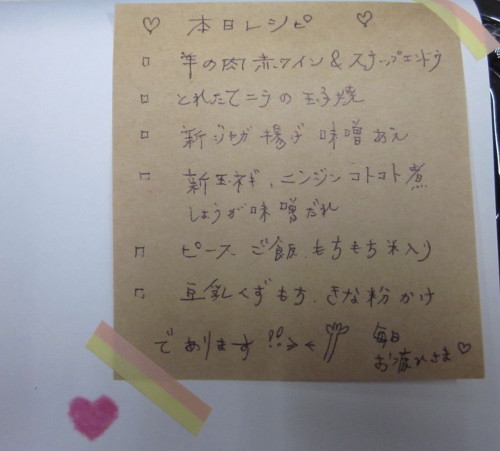 ♡ 本日レシピ ♡
□ 羊の肉赤ワイン&スナップエンドウ
□ とれたてニラの玉子焼
□ 新ジャガ揚げ 味噌あえ
□ 新玉ネギ、ニンジンコトコト煮
しょうが味噌だれ
□ ピースご飯、もちもち米入り
□ 豆乳くずもち、きな粉かけ
であります!!
毎日
お疲れさま♡